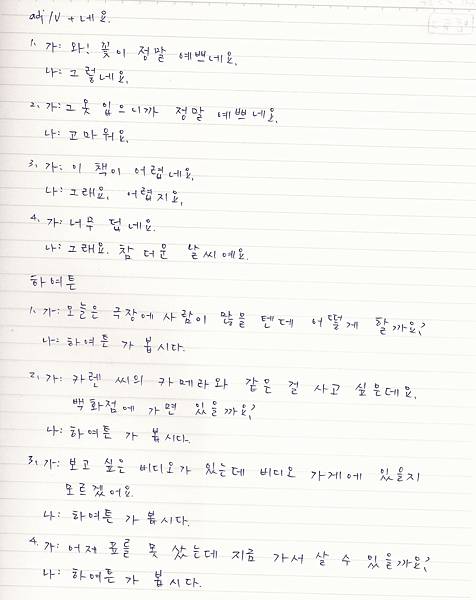 adj/V + 네요.
1. 가: 와! 꽃이 정말 예쁘네요.
나: 그렇네요.
2. 가: 그 옷 입으니까 정말 예쁘네요.
나: 고마워요.
3. 가: 이 책이 어렵네요.
나: 그래요. 어렵지요.
4. 가: 너무 덥네요.
나: 그래요. 참 더운 날씨예요.
하여튼
1. 가: 오늘은 극장에 사람이 많을 텐데 어떻게 할까요?
나: 하여튼 가 봅시다.
2. 가: 카렌 씨의 카메라와 같은 걸 사고 싶은데요.
백화점에 가면 있을까요?
나: 하여튼 가 봅시다.
3. 가: 보고 싶은 비디오가 있는데 비디오 가게에 있을지
모르겠어요.
나: 하여튼 가 봅시다.
4. 가: 어제 표를 못 샀는데 지금 가서 살 수 있을까요?
나: 하여튼 가 봅시다.